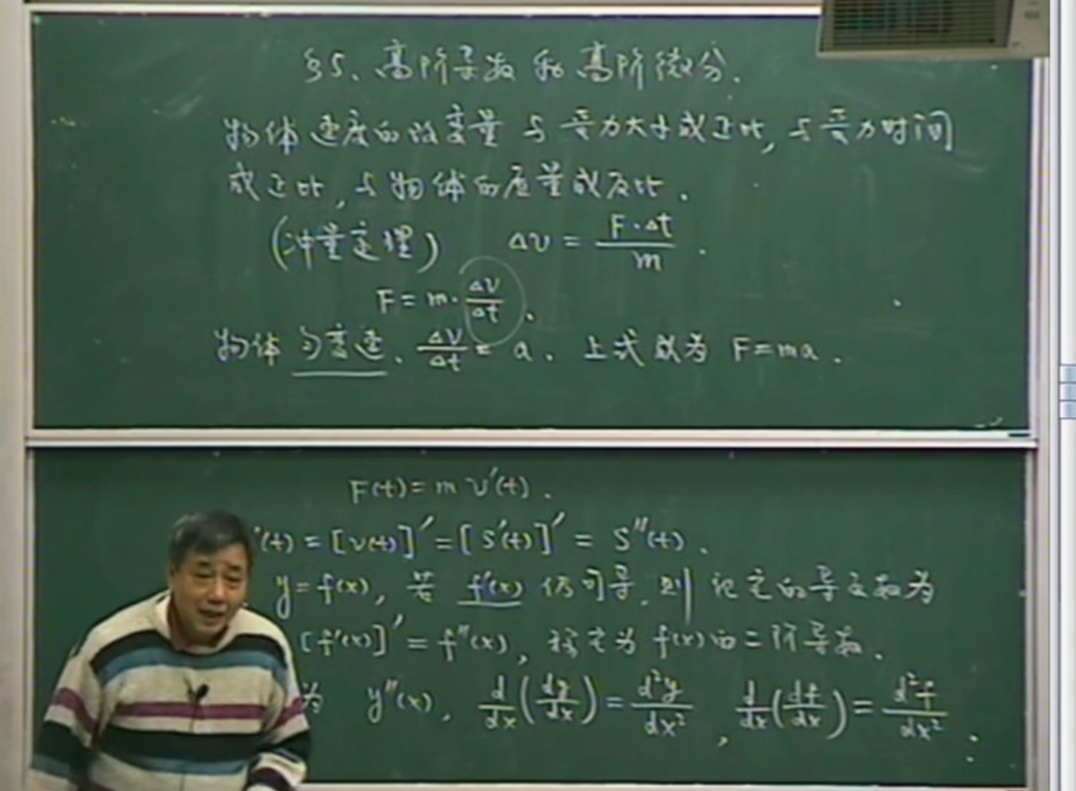 §5、高阶导数和高阶微分.
物体速度的改变量与受力大小成正比,与受力时间
成正比,与物体的质量成反比.
(冲量定理) Δv = F·Δt / m .
F = m· Δv/Δt .
物体匀变速、Δv/Δt = a. 上式成为 F=ma.
F(t) = m v'(t) .
'(t) = [v(t)]' = [S'(t)]' = S''(t) .
y=f(x), 若 f'(x) 仍可导,则记它的导函数为
[f'(x)]' = f''(x), 称它为 f(x)的二阶导数.
为 y''(x), d/dx(dy/dx) = d²y/dx² , d/dx(df/dx) = d²f/dx² .